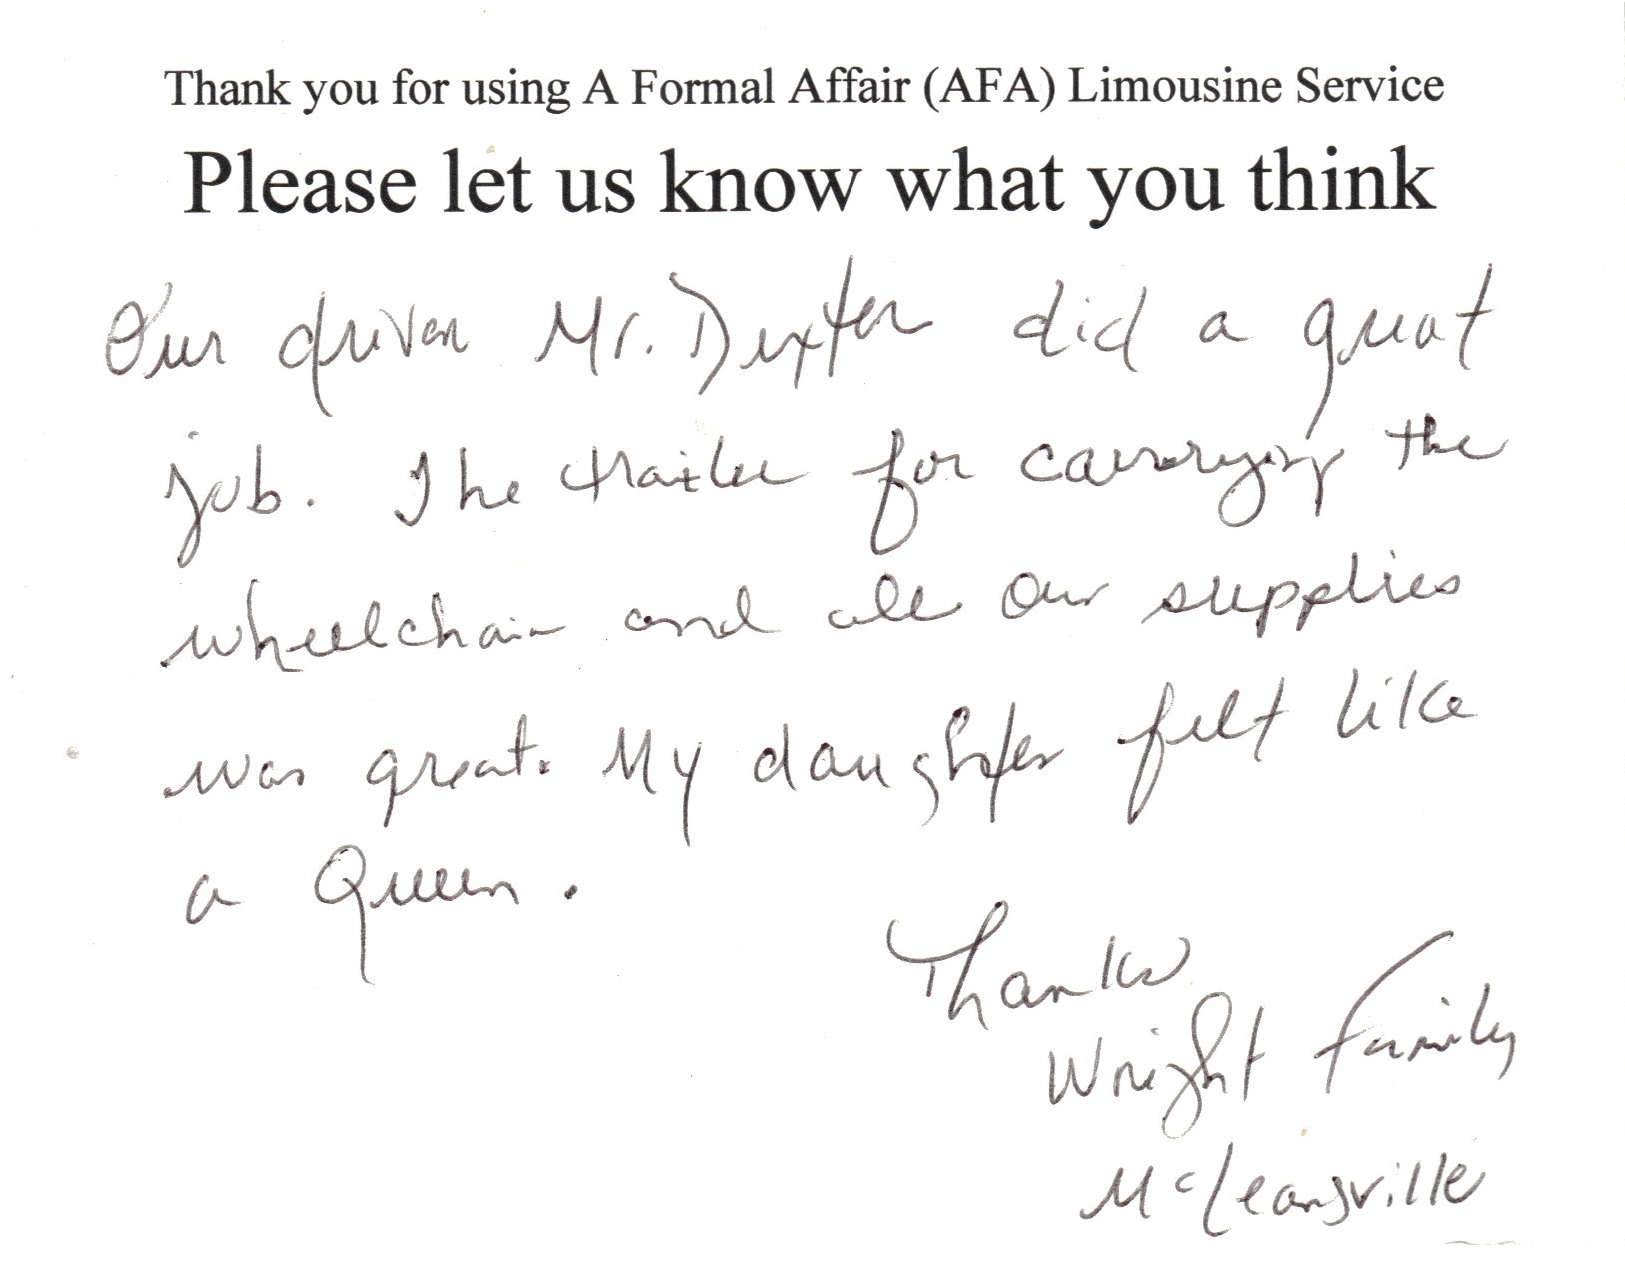 Thank you for using A Formal Affair (AFA) Limousine Service
Please let us know what you think
Our driver Mr. Dexter did a great
job. The trailer for carrying the
wheelchair and all our supplies
was great. My daughter felt like
a Queen.
Thanks
Wright Family
McLeansville